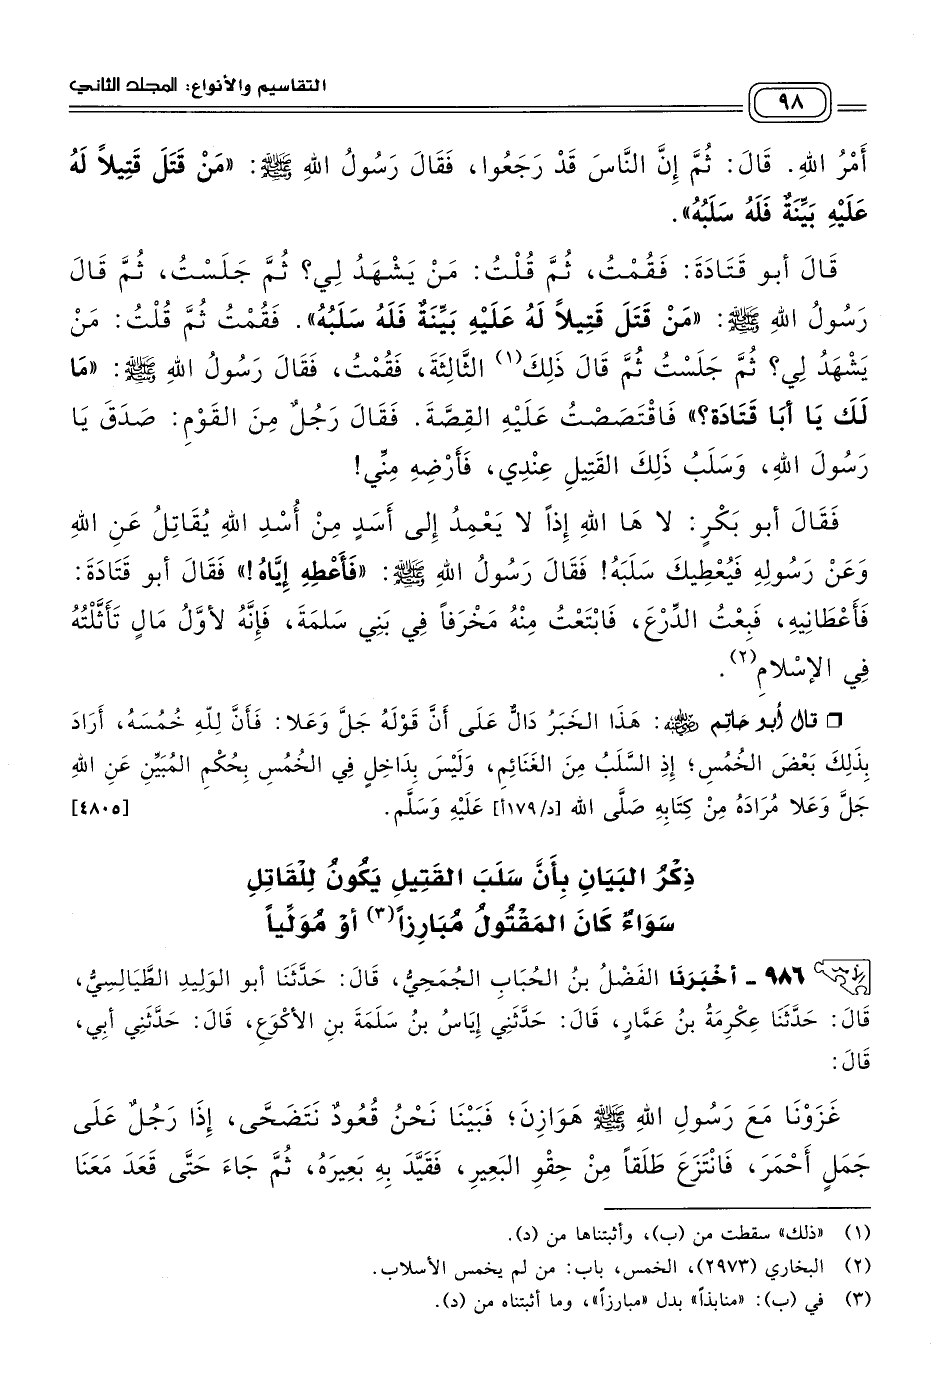 التقاسيم والأنواع: المجلد الثاني
٩٨
أَمْرُ اللهِ. قَالَ: ثُمَّ إِنَّ النَّاسَ قَدْ رَجَعُوا، فَقَالَ رَسُولُ اللهِ ﷺ: «مَنْ قَتَلَ قَتِيلاً لَهُ
عَلَيْهِ بَيِّنَةٌ فَلَهُ سَلَبُهُ».
قَالَ أبو قَتَادَةَ: فَقُمْتُ، ثُمَّ قُلْتُ: مَنْ يَشْهَدُ لِي؟ ثُمَّ جَلَسْتُ، ثُمَّ قَالَ
رَسُولُ اللهِ ﷺ: «مَنْ قَتَلَ قَتِيلاً لَهُ عَلَيْهِ بَيِّنَةٌ فَلَهُ سَلَبُهُ». فَقُمْتُ ثُمَّ قُلْتُ: مَنْ
يَشْهَدُ لِي؟ ثُمَّ جَلَسْتُ ثُمَّ قَالَ ذَلِكَ(١) الثَّالِثَةَ، فَقُمْتُ، فَقَالَ رَسُولُ اللهِ ﷺ: «مَا
لَكَ يَا أَبَا قَتَادَة؟» فَاقْتَصَصْتُ عَلَيْهِ القِصَّةَ. فَقَالَ رَجُلٌ مِنَ القَوْمِ: صَدَقَ يَا
رَسُولَ اللهِ، وَسَلَبُ ذَلِكَ القَتِيلِ عِنْدِي، فَأَرْضِهِ مِنِّي!
فَقَالَ أبو بَكْرٍ: لا هَا اللهِ إِذاً لا يَعْمِدُ إلى أَسَدٍ مِنْ أُسْدِ اللهِ يُقَاتِلُ عَنِ اللهِ
وَعَنْ رَسُولِهِ فَيُعْطِيكَ سَلَبَهُ! فَقَالَ رَسُولُ اللهِ ﷺ: «فَأَعْطِهِ إِيَّاهُ!» فَقَالَ أبو قَتَادَةَ:
فَأَعْطَانِيهِ، فَبِعْتُ الدِّرْعَ، فَابْتَعْتُ مِنْهُ مَخْرَفاً فِي بَنِي سَلمَةَ، فَإِنَّهُ لأوَّلُ مَالٍ تَأَثَّلْتُهُ
فِي الإسْلامِ(٢).
❒ قال أبو حاتم رضي الله عنه: هَذَا الخَبَرُ دَالٌّ عَلَى أَنَّ قَوْلَهُ جَلَّ وَعَلا: فَأَنَّ لِلّهِ خُمُسَهُ، أَرَادَ
بِذَلِكَ بَعْضَ الخُمُسِ؛ إِذِ السَّلَبُ مِنَ الغَنَائِمِ، وَلَيْسَ بِدَاخِلٍ فِي الخُمُسِ بِحُكْمِ المُبَيِّنِ عَنِ اللهِ
جَلَّ وَعَلا مُرَادَهُ مِنْ كِتَابِهِ صَلَّى الله [د/١٧٩أ] عَلَيْهِ وَسَلَّم. [٤٨٠٥]
ذِكْرُ البَيَانِ بِأَنَّ سَلَبَ القَتِيلِ يَكُونُ لِلْقَاتِلِ
سَوَاءٌ كَانَ المَقْتُولُ مُبَارِزاً(٣) أَوْ مُوَلِّياً
٩٨٦ - أخْبَرَنَا الفَضْلُ بنُ الحُبَابِ الجُمَحِيُّ، قَالَ: حَدَّثَنَا أبو الوَلِيدِ الطَّيَالِسِيُّ،
قَالَ: حَدَّثَنَا عِكْرِمَةُ بنُ عَمَّارٍ، قَالَ: حَدَّثَنِي إِيَاسُ بنُ سَلَمَةَ بنِ الأكْوَعِ، قَالَ: حَدَّثَنِي أبِي،
قَالَ:
غَزَوْنَا مَعَ رَسُولِ اللهِ ﷺ هَوَازِنَ؛ فَبَيْنَا نَحْنُ قُعُودٌ نَتَضَحَّى، إِذَا رَجُلٌ عَلَى
جَمَلٍ أَحْمَرَ، فَانْتَزَعَ طَلَقاً مِنْ حِقْوِ البَعِيرِ، فَقَيَّدَ بِهِ بَعِيرَهُ، ثُمَّ جَاءَ حَتَّى قَعَدَ مَعَنَا
(١) «ذلك» سقطت من (ب)، وأثبتناها من (د).
(٢) البخاري (٢٩٧٣)، الخمس، باب: من لم يخمس الأسلاب.
(٣) في (ب): «منابذاً» بدل «مبارزاً»، وما أثبتناه من (د).